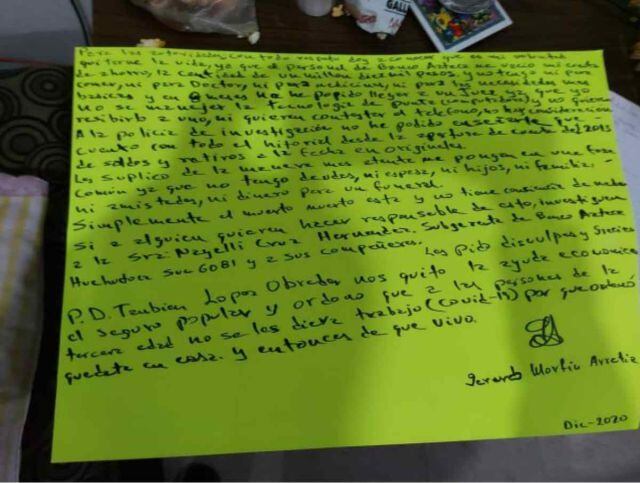 Para las autoridades con todo respeto doy a conocer que es mi voluntad
quitarme la vida, ya que el personal de Banco Azteca me vacio mi cuenta
de ahorro, la cantidad de un millon diez mil pesos, y no tengo ni para
comer, ni para Doctor, ni para medicinas, ni para las necesidades mas
basicas y en B me he podido llegar a un juez ya que yo
no se manejar la tecnologia de punta (computadoras) y no quieren
resibirlo a uno, ni quieren contestar el telefono, no hay consideracion
A la policia de investigación no he podido que
cuento con todo el hitorial desde la apertura de cuenta del 2015
de saldos y retiros a la fecha en originales
Les suplico de la manera mas atenta me pongan en una fosa
comun ya que no tengo deudos, ni esposa, ni hijos, ni familia,
ni amistades, ni dinero para un funeral.
Simplemente el muerto muerto esta y no tiene conciencia de nada
Si a alguien quieren hacer responsable de esto, investiguen
a la Srz. Nayelli Cruz Hernandez. Subgerente de Banco Azteca
Suc 6081 y a sus compañeros.
Les Pido disculpas y Gracias
P.D. Tambien Lopez Obrador nos quito la ayuda economica
el Seguro popular y ordeno que a las personas de la
tercera edad no se les diera trabajo (Covid-19) por que ordeno
quedate en casa. y entonces de que vivo.
Gerardo
Dic-2020
GALL